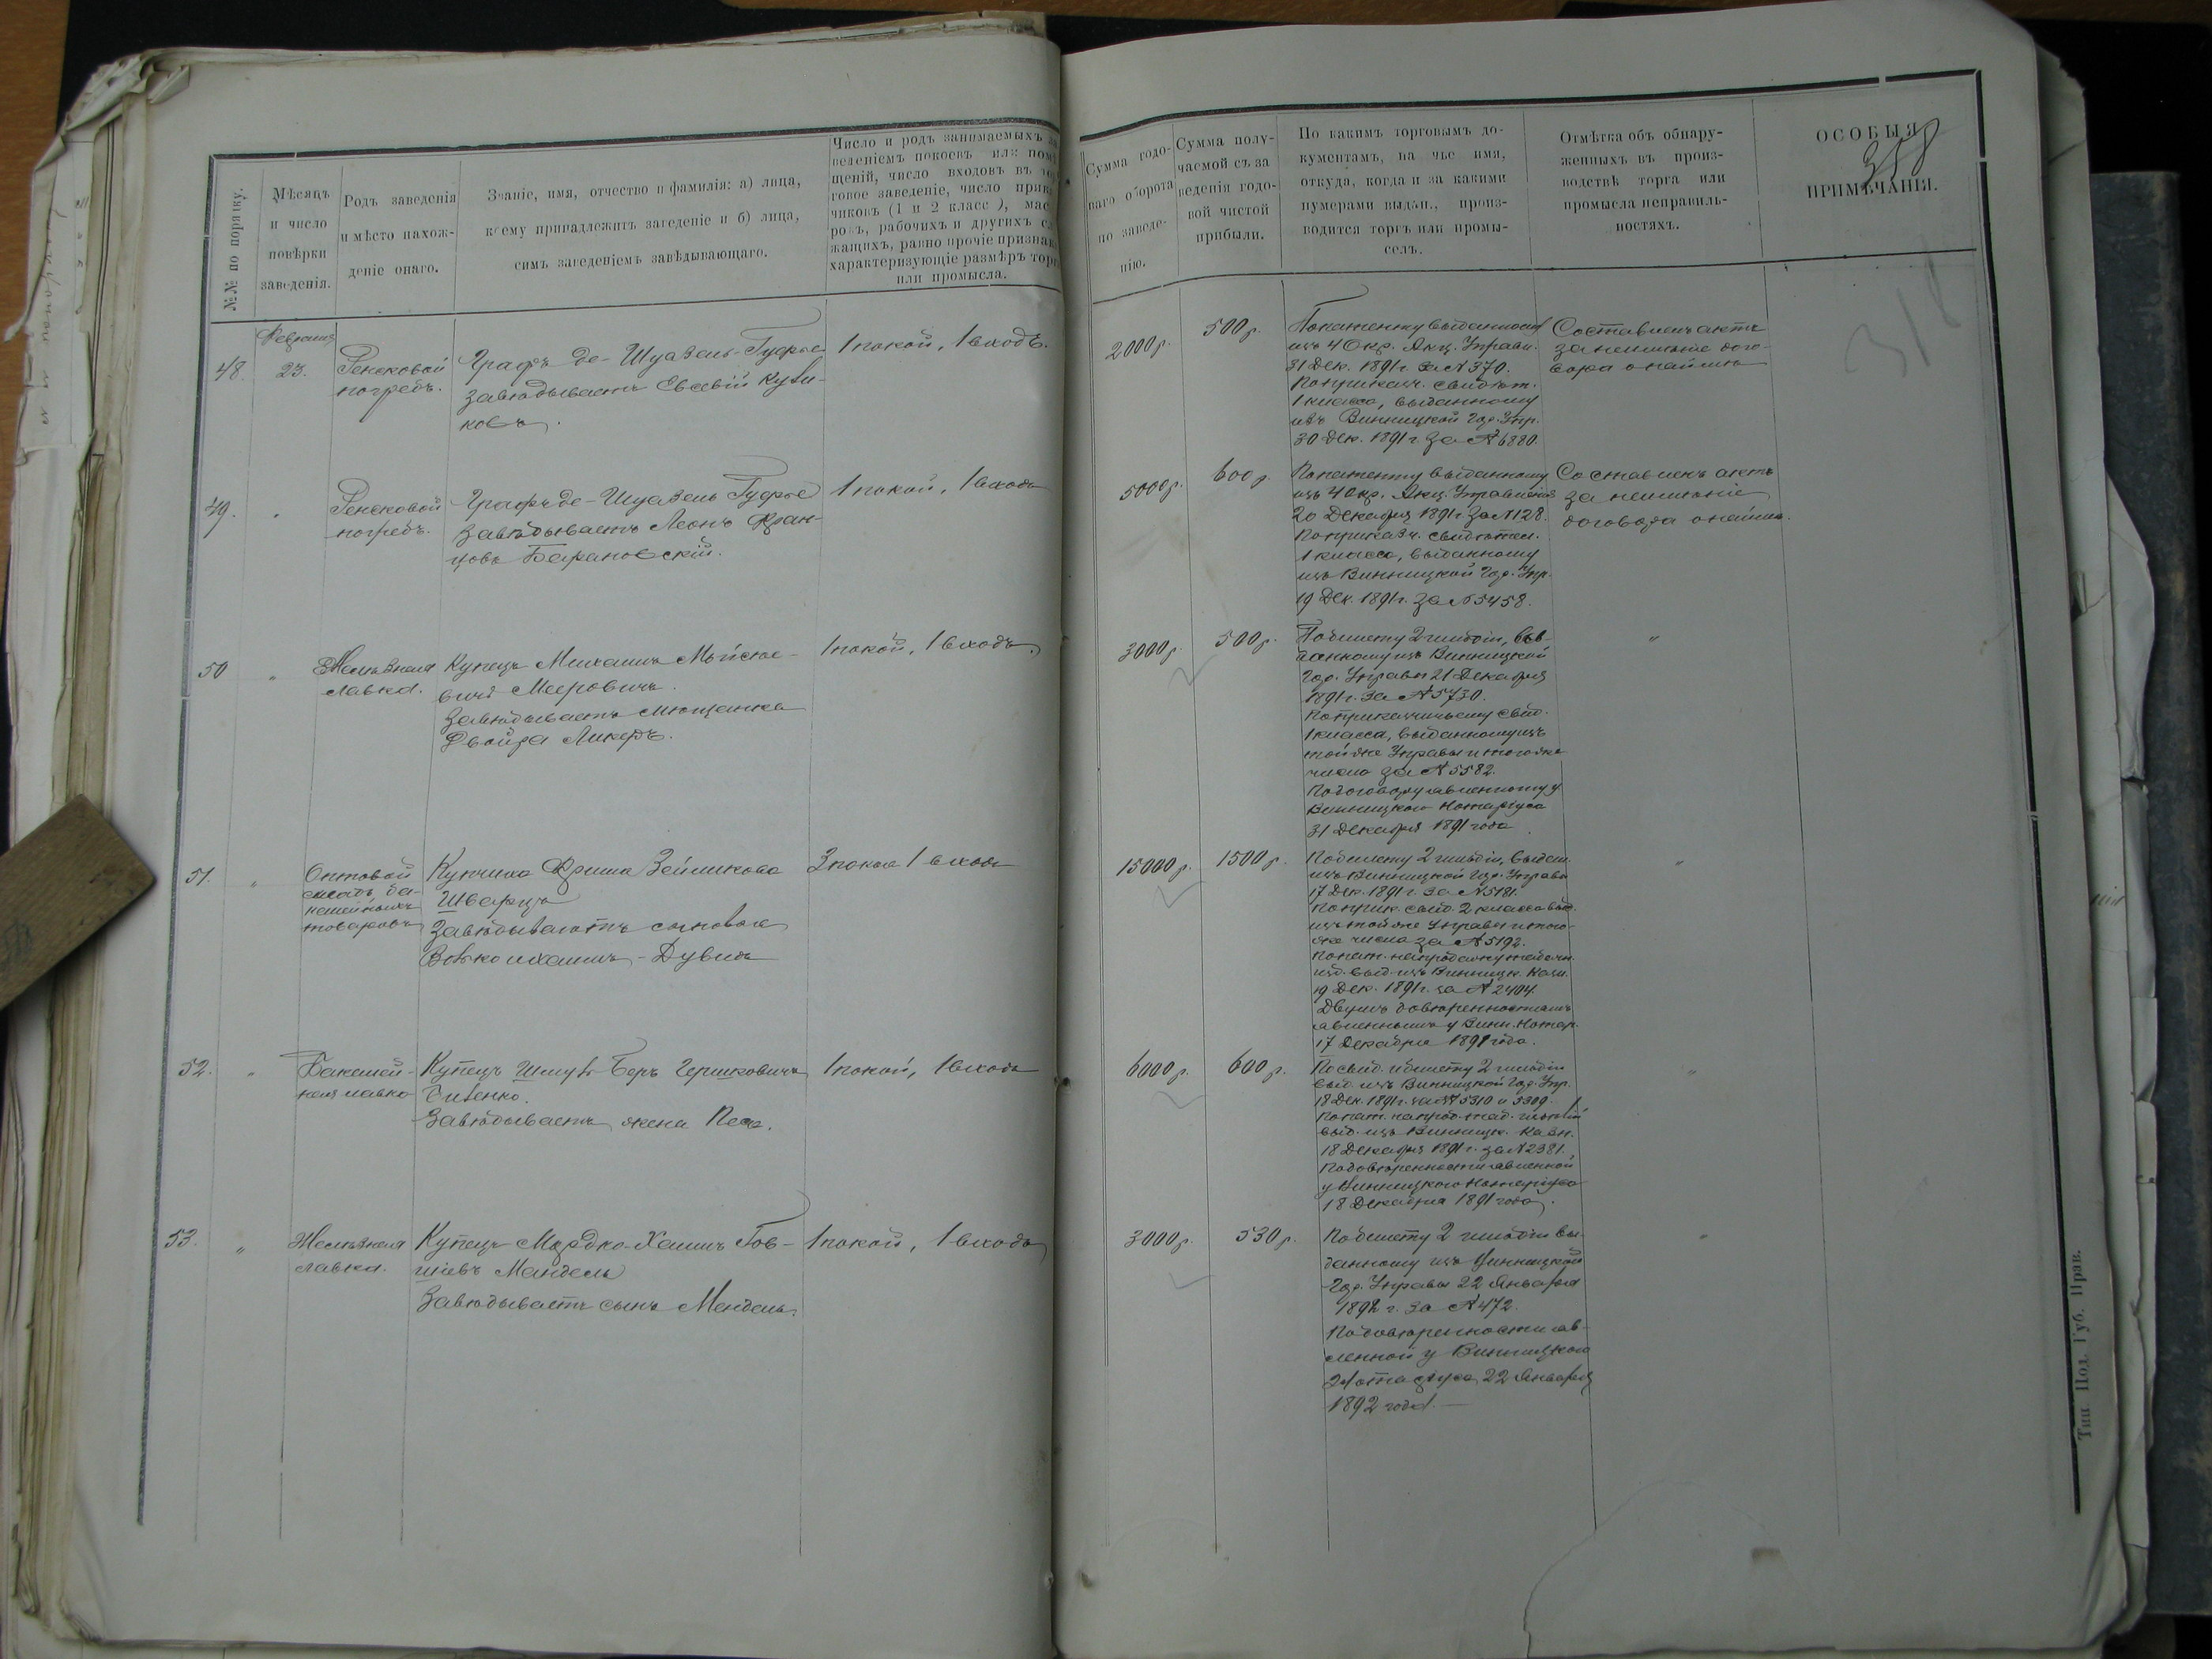 №№ по порядку.
Мѣсяцъ
и число
повѣрки
заведенія.
Родъ заведенія
и мѣсто нахож-
деніе онаго.
Званіе, имя, отчество и фамилія: а) лица,
коему принадлежитъ заведеніе и б) лица,
симъ заведеніемъ завѣдывающаго.
Число и родъ занимаемыхъ
веденіемъ покоевъ или
щеній, число входовъ въ
говое заведеніе, число
чиковъ (1 и 2 класс),
рабочихъ и другихъ
жащихъ, равно прочіе
характеризующіе размѣръ
или промысла.
Сумма годо-
ваго оборота
по заведе-
нію.
Сумма полу-
чаемой съ за
веденія годо-
вой чистой
прибыли.
По какимъ торговымъ до-
кументамъ, на чье имя,
откуда, когда и за какими
нумерами выдан., произ-
водится торгъ или промы-
селъ.
Отмѣтка объ обнару-
женныхъ въ произ-
водствѣ торга или
промысла неправиль-
ностяхъ.
ОСОБЫЯ
ПРИМѢЧАНІЯ.
358
318
48.
Февраля
23.
Ренсковой
погребъ.
Графъ де-Шуазель-Гуфье
завѣдываетъ Евсевій Куви-
ковъ.
1 покой, 1 входъ.
2000 р.
500 р.
По патенту выданному
изъ 4 Окр. Акц. Управл.
31 Дек. 1891 г. за № 370.
По приказч. свидѣт.
1 класса, выданному
изъ Винницкой Гор. Упр.
30 Дек. 1891 г. за № 6880.
Составленъ актъ
за неимѣніе дого-
вора о наймѣ
49.
Ренсковой
погребъ.
Графъ де-Шуазель Гуфье
Завѣдываетъ Леонъ Фран-
цовъ Барановскій.
1 покой, 1 входъ
5000 р.
600 р.
По патенту выданному
изъ 4 Окр. Акц. Управленія
20 Декабря 1891 г. за № 128.
По приказч. свидѣтел.
1 класса, выданному
изъ Винницкой Гор. Упр.
19 Дек. 1891 г. за № 5458.
Составленъ актъ
за неимѣніе
договора о наймѣ.
50
"
Желѣзная
лавка.
Купецъ Михаилъ Мойсее-
вичъ Мееровичъ.
Завѣдываетъ мѣщанка
Двойра Ликеръ.
1 покой, 1 входъ.
3000 р.
500 р.
По билету 2 гильдіи, выд-
данному изъ Винницкой
Гор. Управы 21 Декабря
1891 г. за № 5730.
По приказчичьему свид.
1 класса, выданному изъ
той же Управы и того же
числа за № 5582.
По договору явленному у
Винницкаго Нотаріуса
31 Декабря 1891 года
"
51.
"
Оптовой
складъ ба-
калейныхъ
товаровъ
Купчиха Фрима Зейликова
Шварцъ
Завѣдываютъ сыновья
Волько и Хаимъ-Дувидъ
3 покоя 1 входъ
15000 р.
1500 р.
По билету 2 гильдіи, выдан.
изъ Винницкой Гор. Управы
17 Дек. 1891 г. за № 5181.
По прик. свид. 2 класса выд.
изъ той же Управы и того-
же числа за № 5192.
По пат. на продажу табачн.
изд. выд. изъ Винницк. Казн.
19 Дек. 1891 г. за № 2404.
Двумъ довѣренностямъ
явленнымъ у Винн. Нотар.
17 Декабря 1891 года.
"
52.
"
Бакалей-
ная лавка
Купецъ Шмуль Беръ Гершковичъ
Титенко.
Завѣдываетъ жена Песя.
1 покой, 1 входъ
6000 р.
600 р.
По свид. и билету 2 гильдіи
выд. изъ Винницкой Гор. Упр.
18 Дек. 1891 г. за №№ 5310 и 5309.
По пат. на прод. таб. издѣлій
выд. изъ Винницк. Казн.
18 Декабря 1891 г. за № 2381.
По довѣренности явленной
у Винницкаго Нотаріуса
18 Декабря 1891 года.
"
53.
"
Желѣзная
лавка.
Купецъ Мордко-Хаимъ Гов-
шіевъ Мандель
Завѣдываетъ сынъ Мендель.
1 покой, 1 входъ
3000 р.
530 р.
По билету 2 гильдіи вы-
данному изъ Винницкой
Гор. Управы 22 Января
1892 г. за № 472.
По довѣренности яв-
ленной у Винницкаго
Нотаріуса 22 Января
1892 года.
"
Тип Под. Губ. Прав.